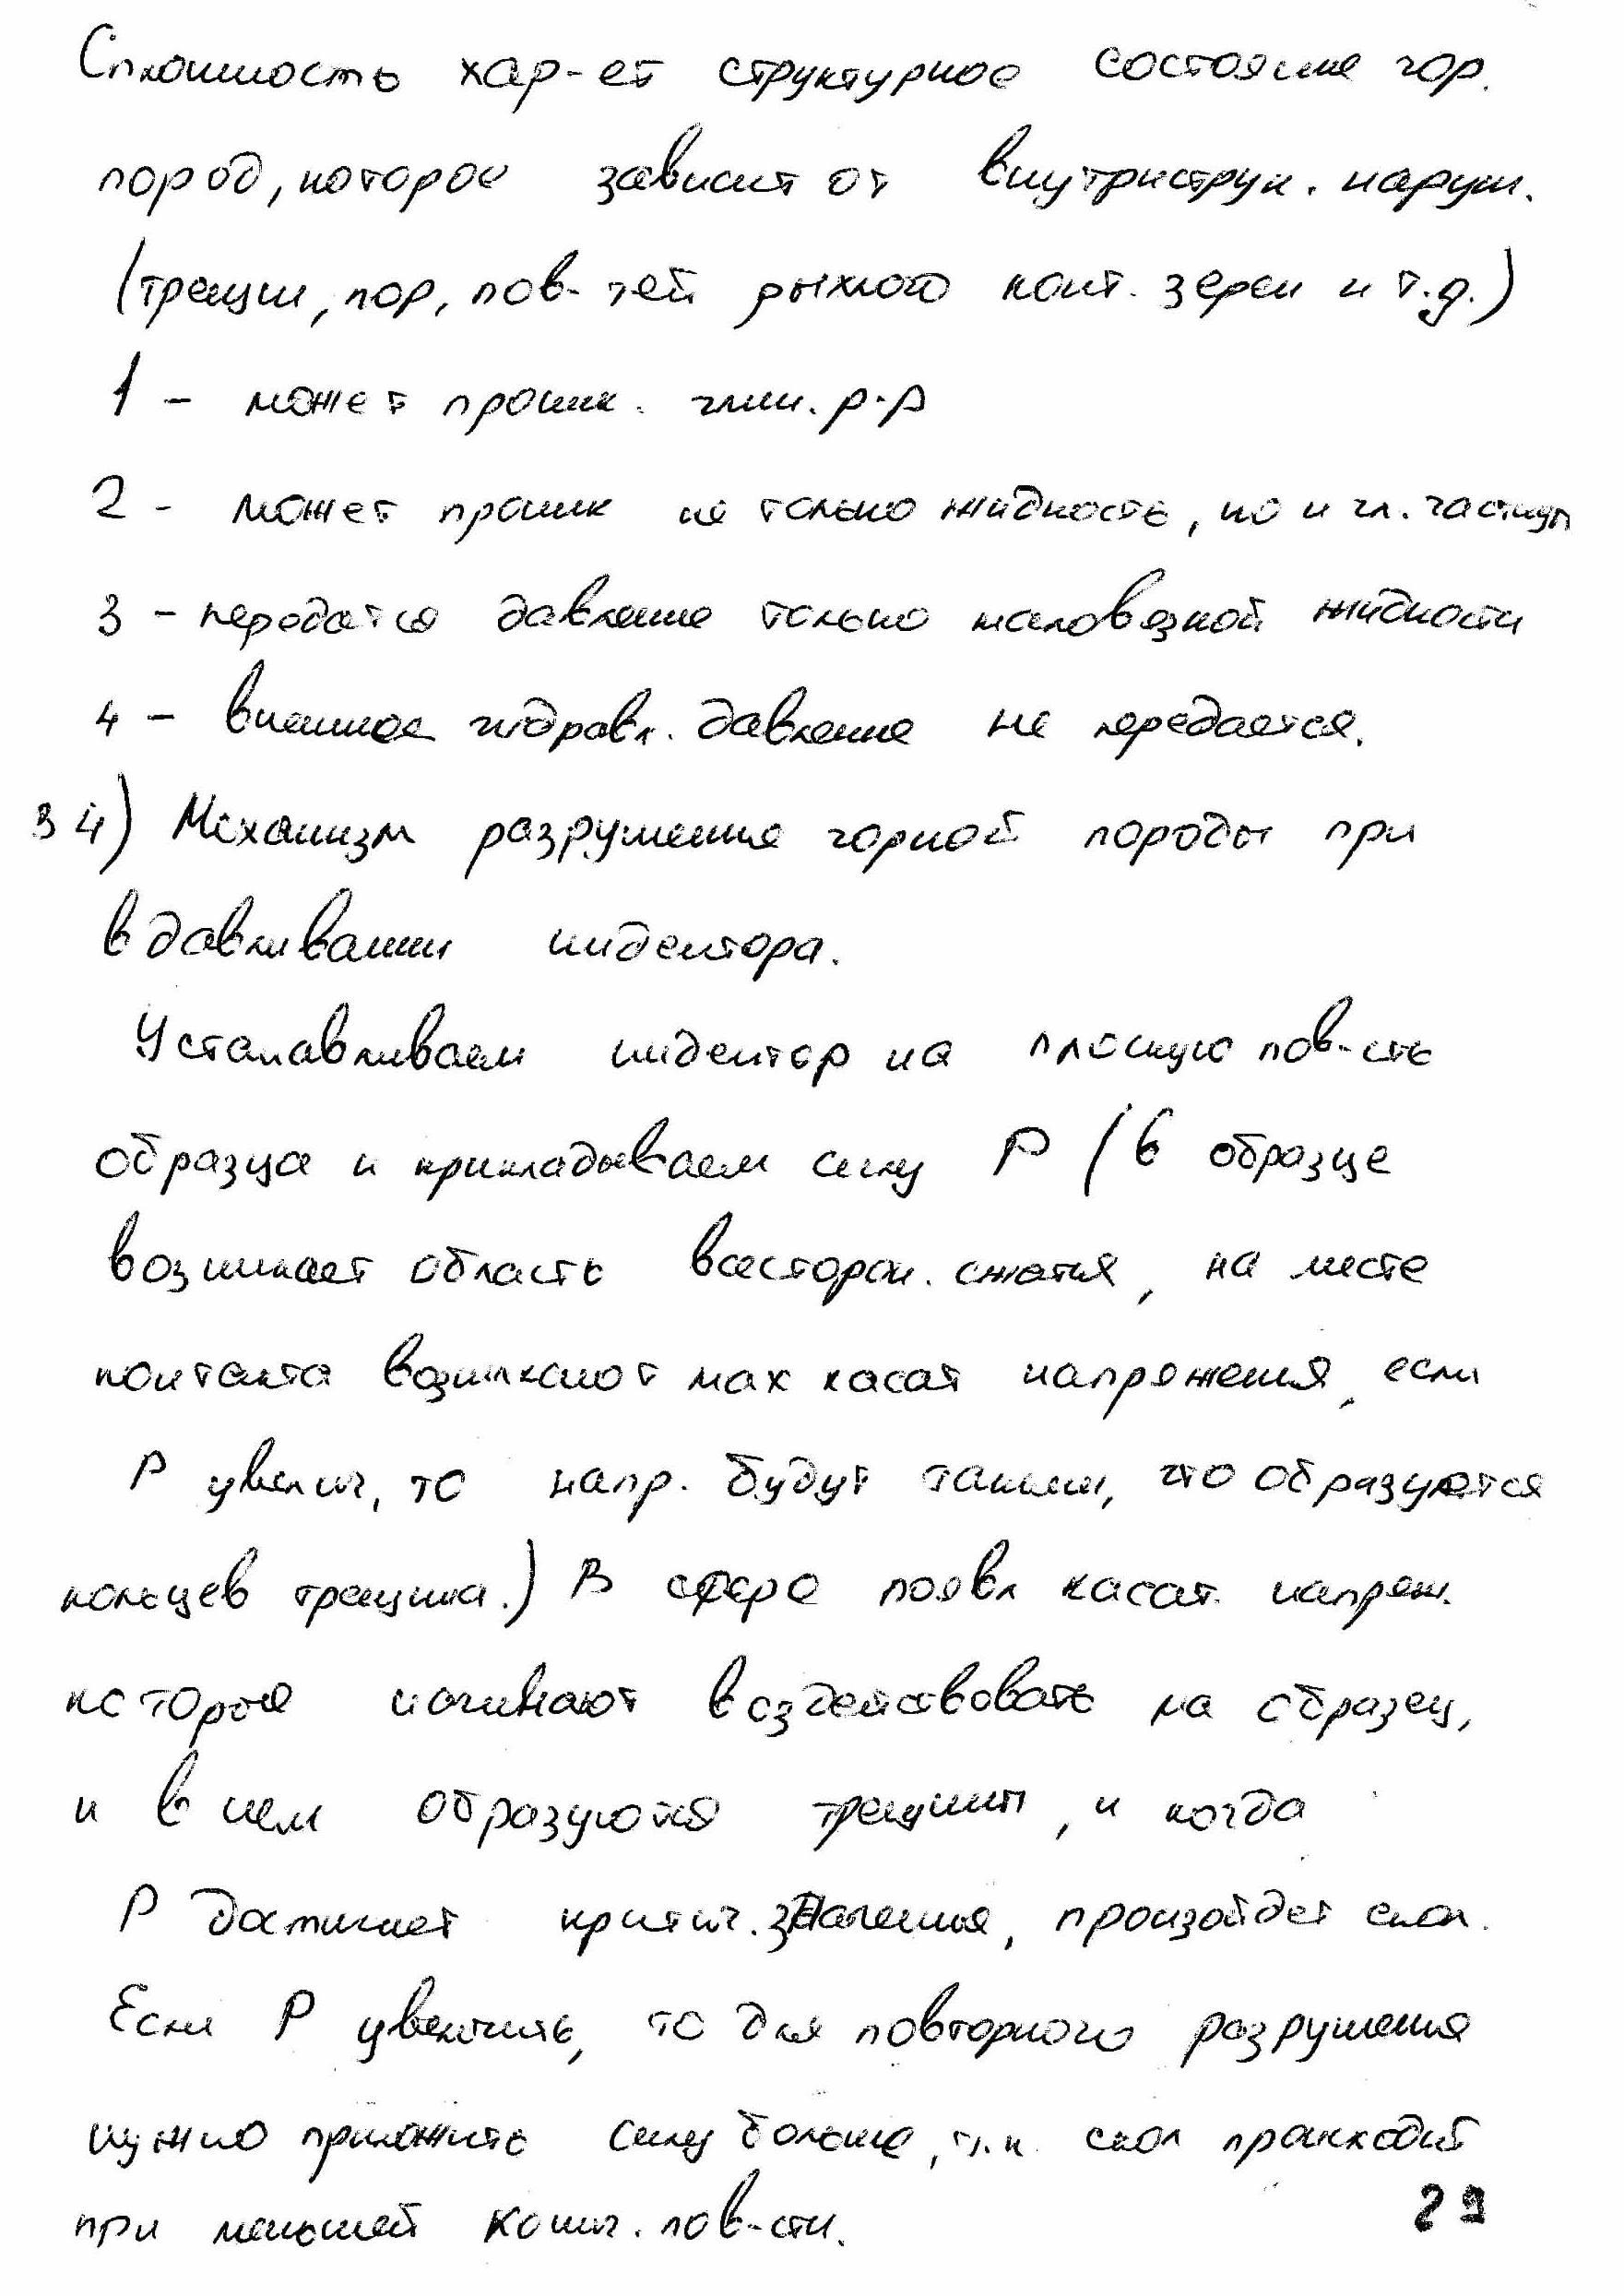 Сплошность хар-ет структурное состояние гор.
пород, которое зависит от внутриструк. наруш.
(трещин, пор, пов-тей рыхлого конт. зерен и т.д.)
1 - может проник. глин. р-р
2 - может проник не только жидкость, но и гл. частицы
3 - передатся давление только маловязкой жидкости
4 - внешнее гидравл. давление не передается.
34) Механизм разрушения горной породы при
вдавливании индентора.
Устанавливаем индентор на плоскую пов-сть
образца и прикладываем силу P (в образце
возникает область всесторон. сжатия, на месте
контакта возникают мах касат напряжения, если
P увелич, то напр. будут такими, что образуется
кольцев трещина.) В сфере появл касат. напряж.
которые начинают воздействовать на образец,
и в нем образуются трещины, и когда
P достигнет критич. значения, произойдет скол.
Если P увеличить, то для повторного разрушения
нужно приложить силу больше, т.к. скол происходит
при меньшей конт. пов-сти.
29